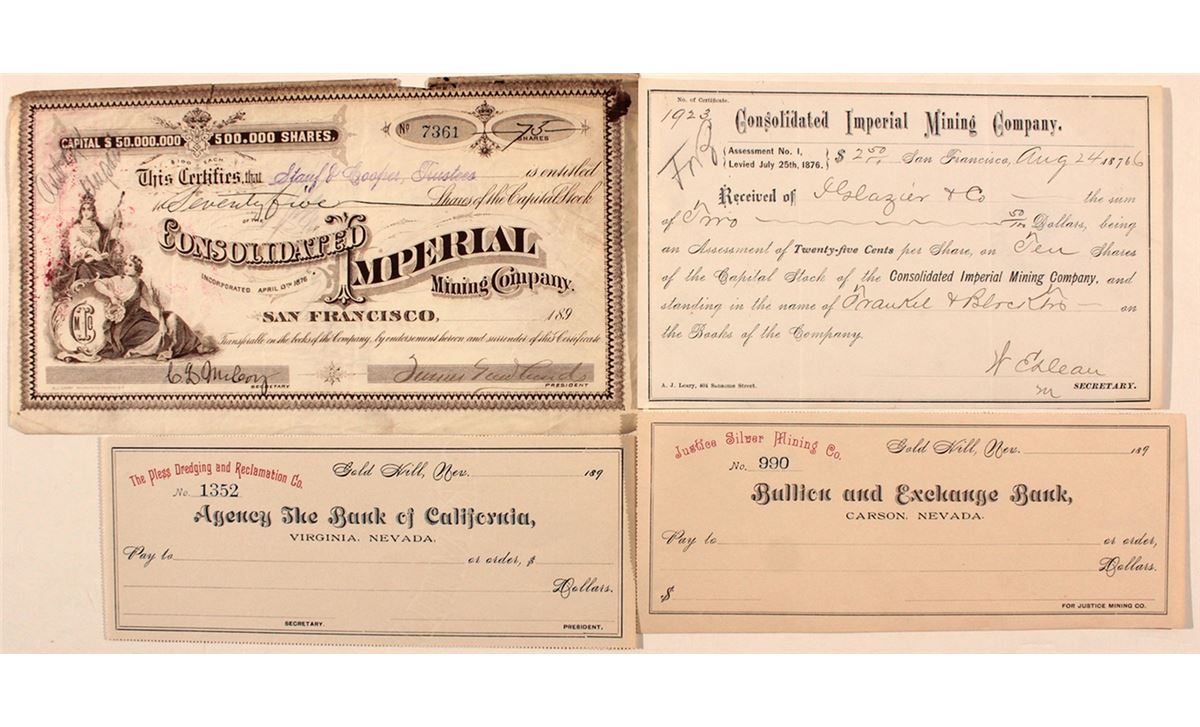 CAPITAL $ 50.000.000
500.000 SHARES.
No 7361
75
SHARES
$100 EACH
This Certifies, that Stauf & Cooper, Trustees is entitled
to Seventy five Shares of the Capital Stock
OF THE
CONSOLIDATED IMPERIAL
Mining Company.
INCORPORATED APRIL 13TH 1876
SAN FRANCISCO, 189
Transferable on the books of the Company, by endorsement hereon and surrender of this Certificate
SECRETARY
PRESIDENT.
No. of Certificate.
1923
Consolidated Imperial Mining Company.
Assessment No. 1,
Levied July 25th, 1876.
$ 2 50 San Francisco, Aug 24 1876
Received of Glazier & Co the sum
of Two 50/100 Dollars, being
an Assessment of Twenty-five Cents per Share, on Ten Shares
of the Capital Stock of the Consolidated Imperial Mining Company, and
standing in the name of Frankel & on
the Books of the Company.
A. J. Leary, 404 Sansome Street.
SECRETARY.
The Pless Dredging and Reclamation Co.
Gold Hill, Nev. 189
No. 1352
Agency The Bank of California,
VIRGINIA, NEVADA.
Pay to or order, $
Dollars.
SECRETARY.
PRESIDENT.
Justice Silver Mining Co.
Gold Hill, Nev. 189
No. 990
Bullion and Exchange Bank,
CARSON, NEVADA.
Pay to or order,
Dollars.
$
FOR JUSTICE MINING CO.